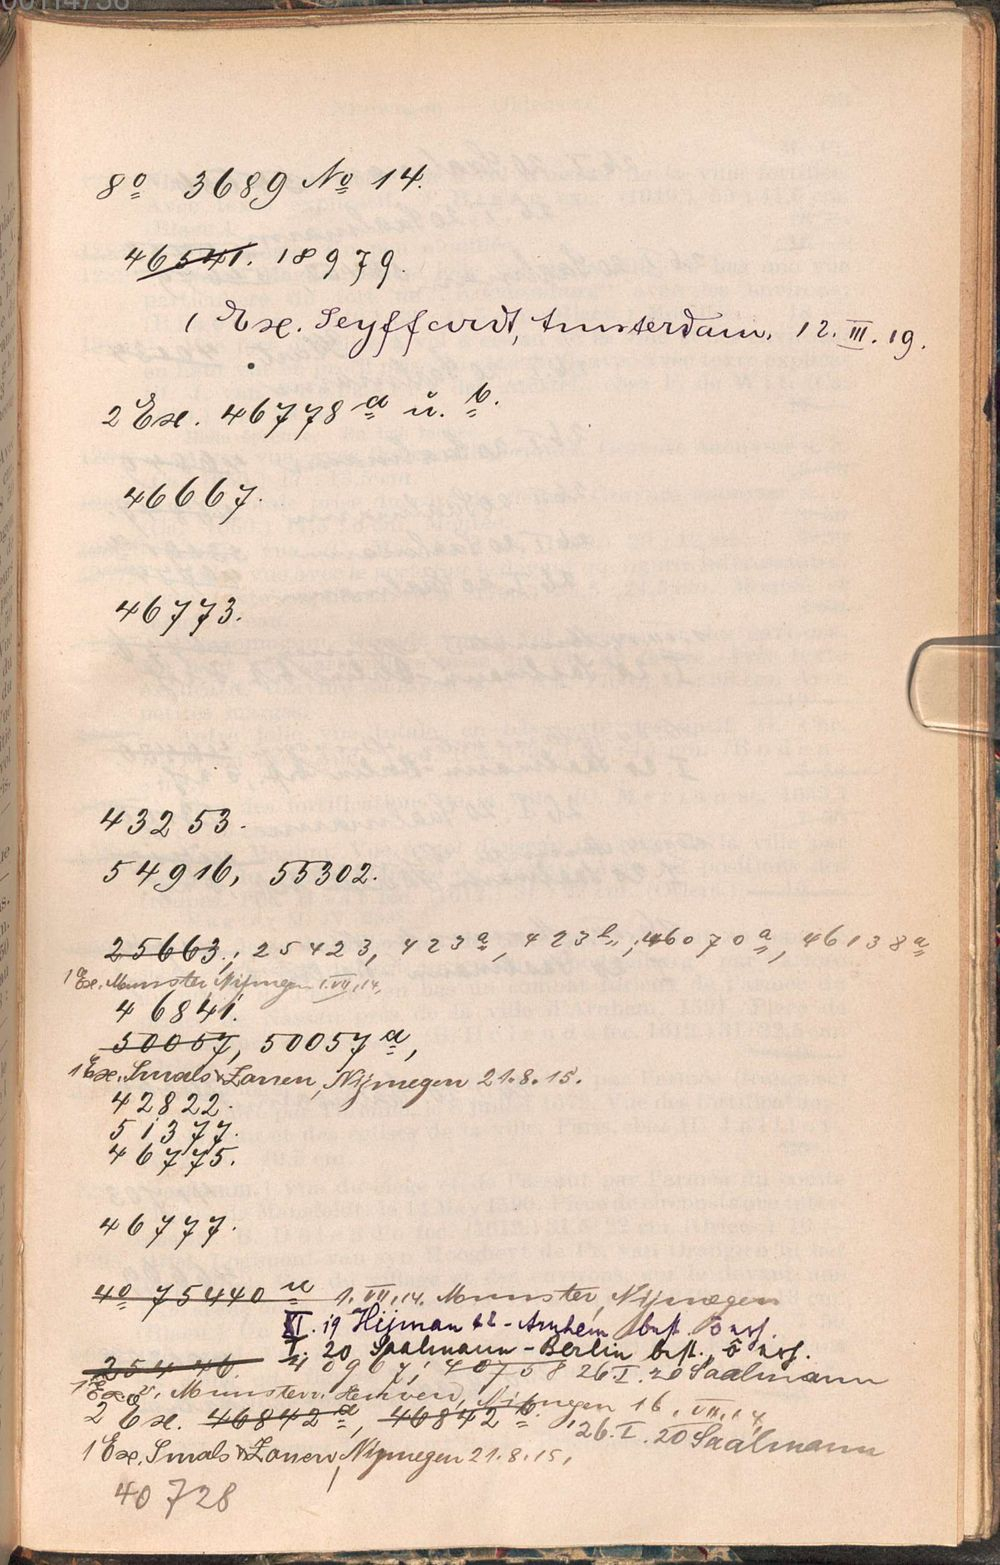 00114756
8º 3689 Nº 14.
46541. 18979.
1 Ex. Seyffardt, Amsterdam. 12. III. 19.
2 Ex. 46778 a u. b.
46667.
46773.
43253.
54916, 55302.
25663.; 25423, 423a, 423b, 46070a, 46138a
1 Ex. Munster Nijmegen 1.VII.14.
46841.
50057, 50057a,
1 Ex. Smals & Zonen, Nijmegen 21.8.15.
42822.
51377.
46775.
46777.
4º 75440 a 1. VII.14. Munster, Nijmegen
XI. 19 Hijman - Arnhem best.
I. 20 Saalmann - Berlin best.
25446. 40967, 40758 26 I. 20 Saalmann
1 Ex. Munster, Nijmegen 16. VII. 14.
2 Ex. 46842 a, 46842 b.
26. I. 20 Saalmann
1 Ex. Smals & Zonen, Nijmegen 21.8.15.
40728